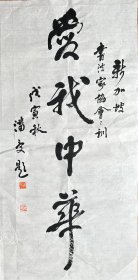 新加坡
書法家協會之訓
愛我中華
戊寅秋
潘受題